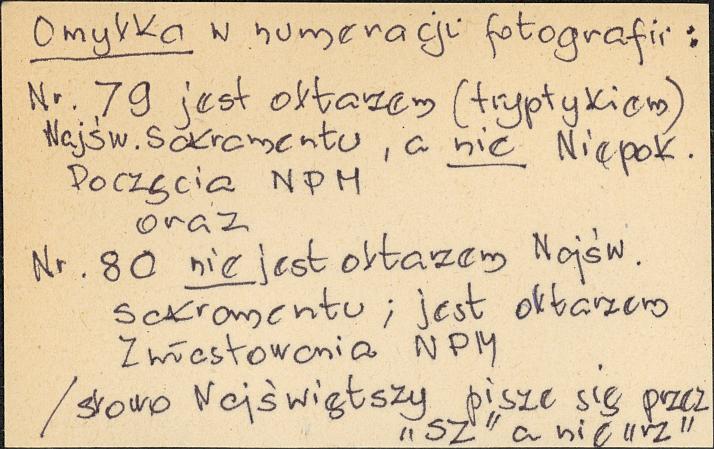 Omyłka w numeracji fotografii:
Nr. 79 jest ołtarzem (tryptykiem)
Najśw. Sakramentu, a nie Niepok.
Poczęcia NPM
oraz
Nr. 80 nie jest ołtarzem Najśw.
sakramentu; jest ołtarzem
Zwiastowania NPM
/słowo Najświętszy pisze się przez
"sz" a nie "rz"